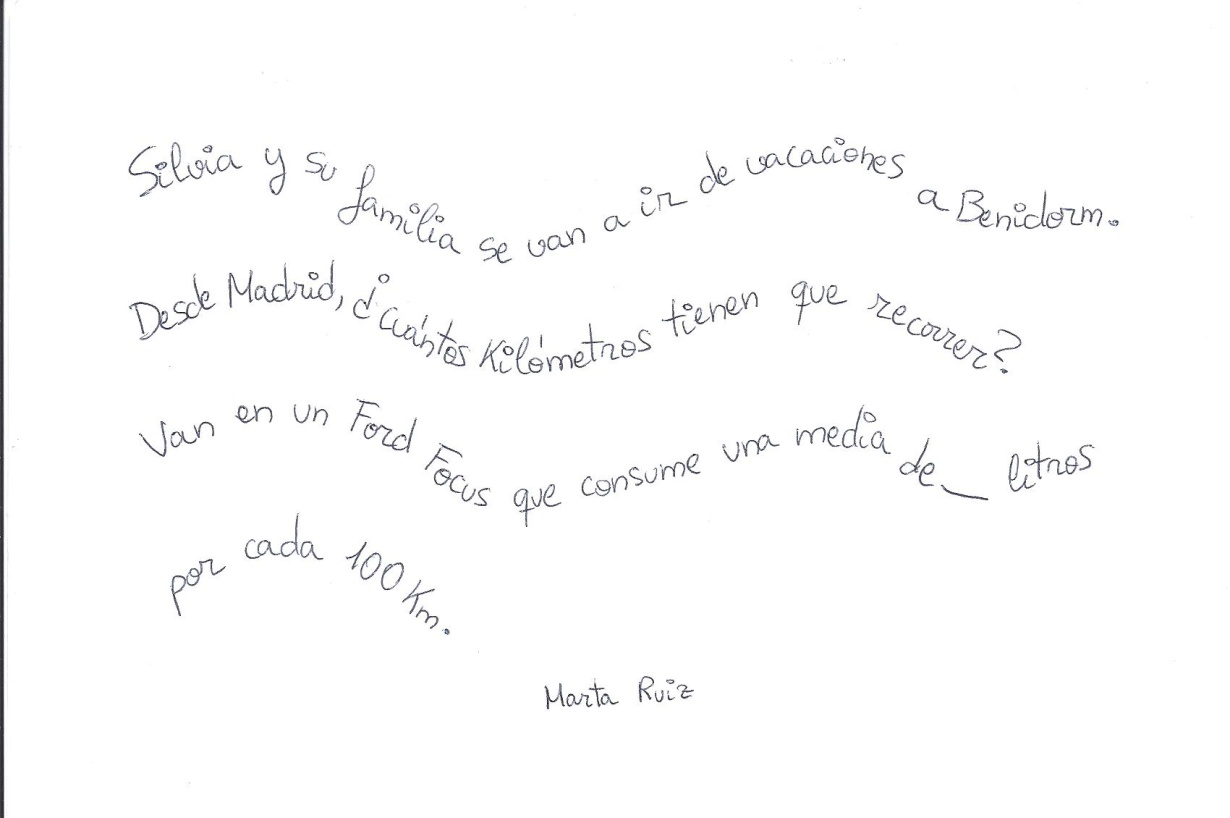 Silvia y su familia se van a ir de vacaciones a Benidorm.
Desde Madrid, ¿cuántos Kilómetros tienen que recorrer?
Van en un Ford Focus que consume una media de __ litros
por cada 100 Km.
Marta Ruiz